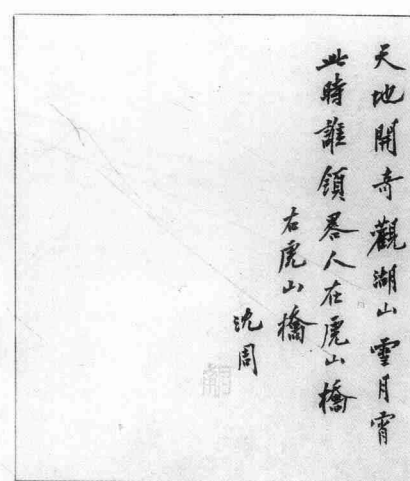 天地開奇觀湖山雪月宵
此時誰領畧人在虎山橋
右虎山橋
沈周